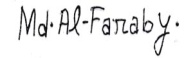 Md. Al-Faraby.